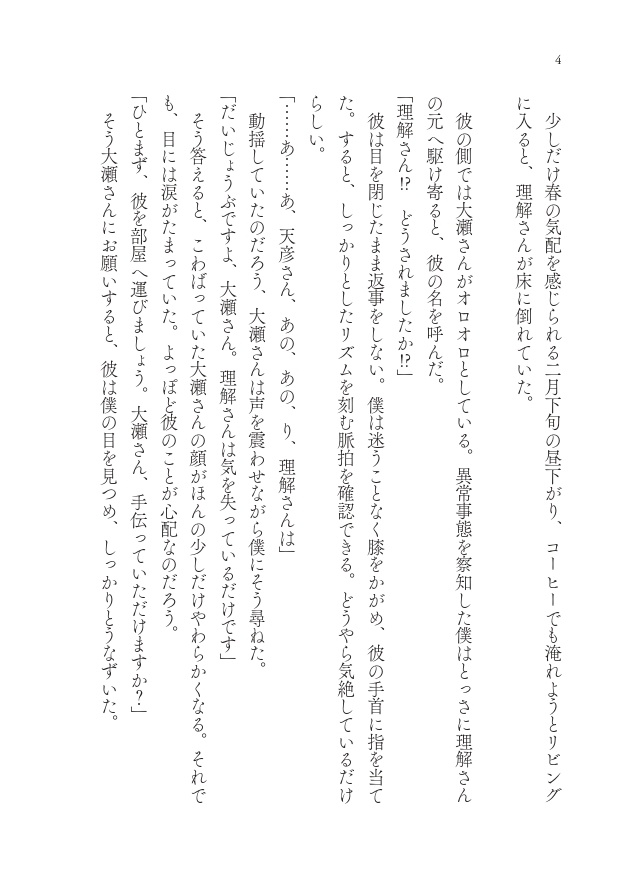 4
少しだけ春の気配を感じられる二月下旬の昼下がり、コーヒーでも淹れようとリビング
に入ると、理解さんが床に倒れていた。
彼の側では大瀬さんがオロオロとしている。異常事態を察知した僕はとっさに理解さん
の元へ駆け寄ると、彼の名を呼んだ。
「理解さん⁉　どうされましたか⁉」
彼は目を閉じたまま返事をしない。僕は迷うことなく膝をかがめ、彼の手首に指を当て
た。すると、しっかりとしたリズムを刻む脈拍を確認できる。どうやら気絶しているだけ
らしい。
「……あ……あ、天彦さん、あの、あの、り、理解さんは」
動揺していたのだろう、大瀬さんは声を震わせながら僕にそう尋ねた。
「だいじょうぶですよ、大瀬さん。理解さんは気を失っているだけです」
そう答えると、こわばっていた大瀬さんの顔がほんの少しだけやわらかくなる。それで
も、目には涙がたまっていた。よっぽど彼のことが心配なのだろう。
「ひとまず、彼を部屋へ運びましょう。大瀬さん、手伝っていただけますか？」
そう大瀬さんにお願いすると、彼は僕の目を見つめ、しっかりとうなずいた。